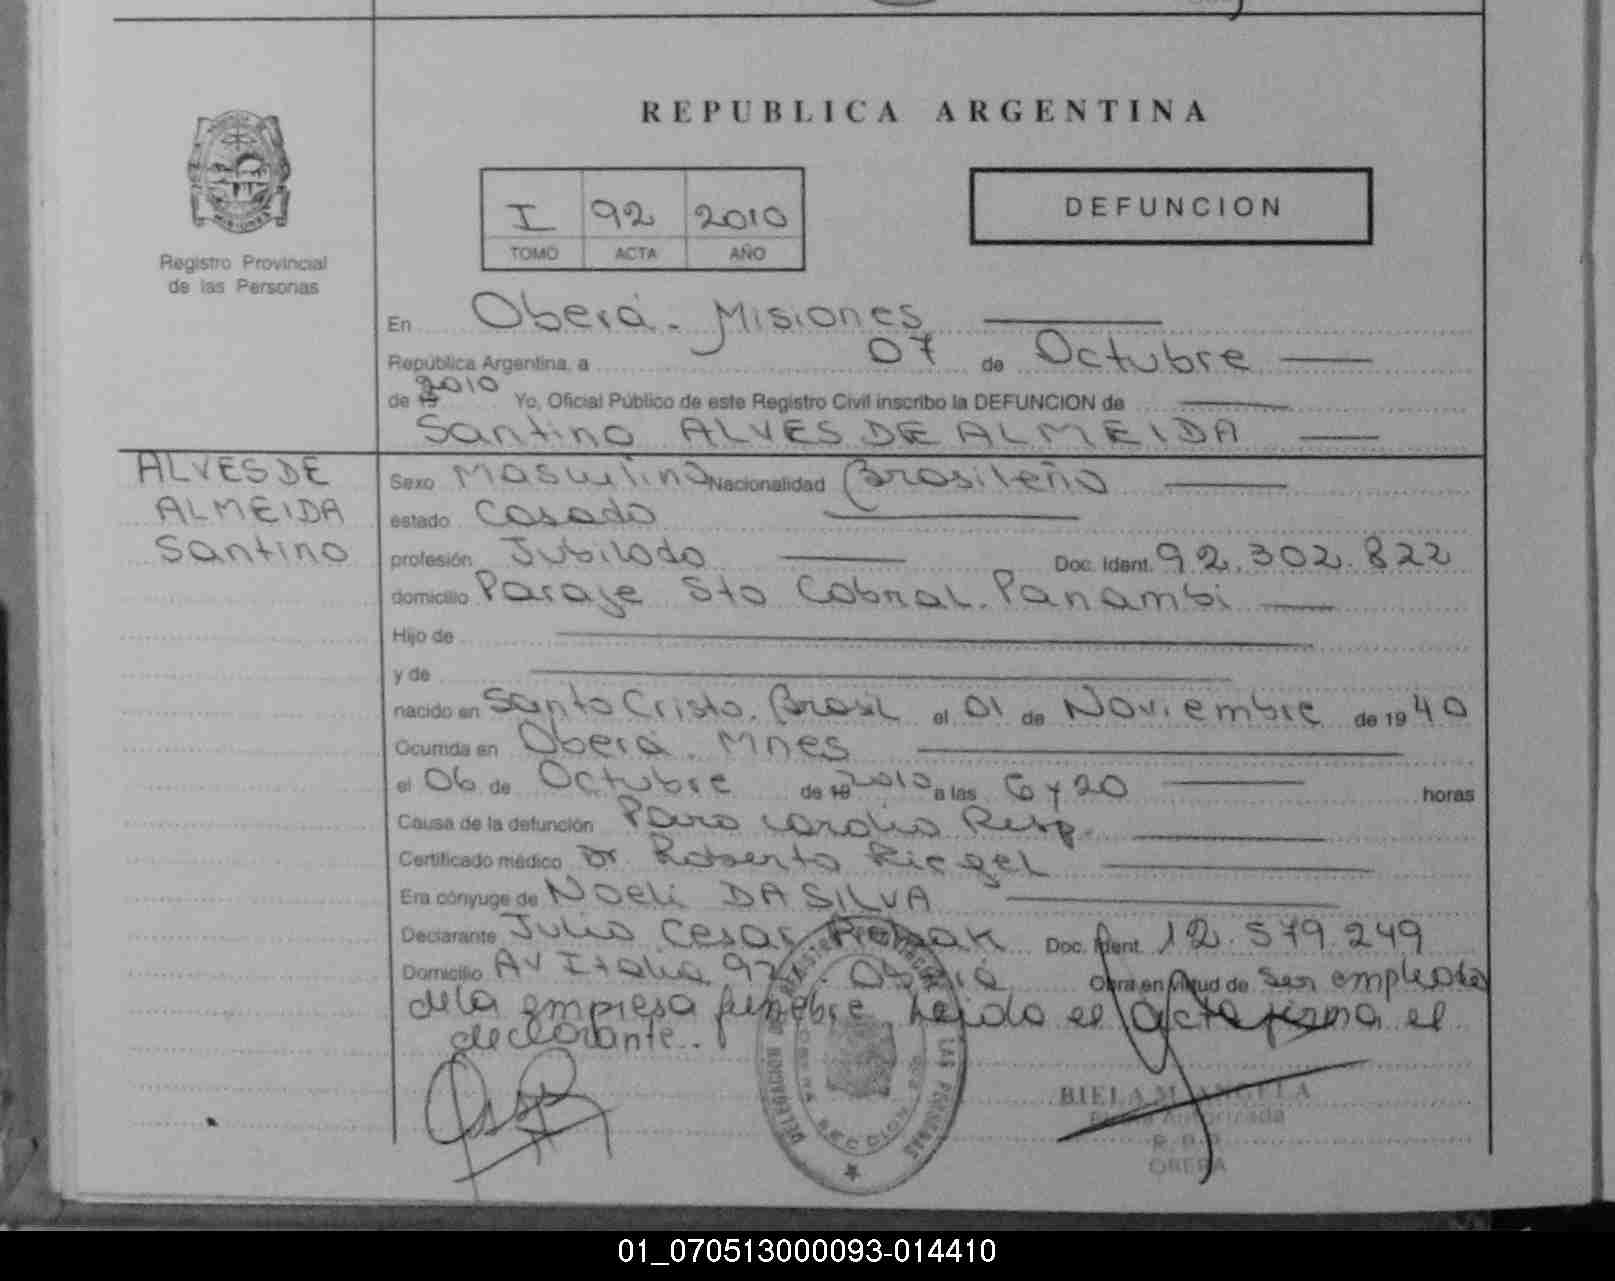 REPUBLICA ARGENTINA
I 92 2010
TOMO ACTA AÑO
DEFUNCION
Registro Provincial
de las Personas
En Oberá - Misiones
República Argentina, a 07 de Octubre
de 19 2010 Yo, Oficial Público de este Registro Civil inscribo la DEFUNCION de
Santino ALVES DE ALMEIDA
ALVES DE
ALMEIDA
Santino
Sexo Masculino Nacionalidad Brasileño
estado Casado
profesión Jubilado Doc. Ident. 92.302.822
domicilio Paraje Sto Cabral. Panambi
Hijo de
y de
nacido en Santo Cristo. Brasil el 01 de Noviembre de 1940
Ocurrida en Oberá. Mnes
el 06 de Octubre de 19 2010 a las 6 y 20 horas
Causa de la defunción Paro cardio Resp.
Certificado médico Dr. Roberto Riegel
Era cónyuge de Noeli DA SILVA
Declarante Julio Cesar Doc. Ident. 12.579.249
Domicilio AV Italia Oberá Obra en virtud de ser empleado
de la empresa fúnebre Leído el acta firma el
declarante.
BIELA M. ANGELA
Firma Autorizada
R. P. P.
OBERA
01_070513000093-014410